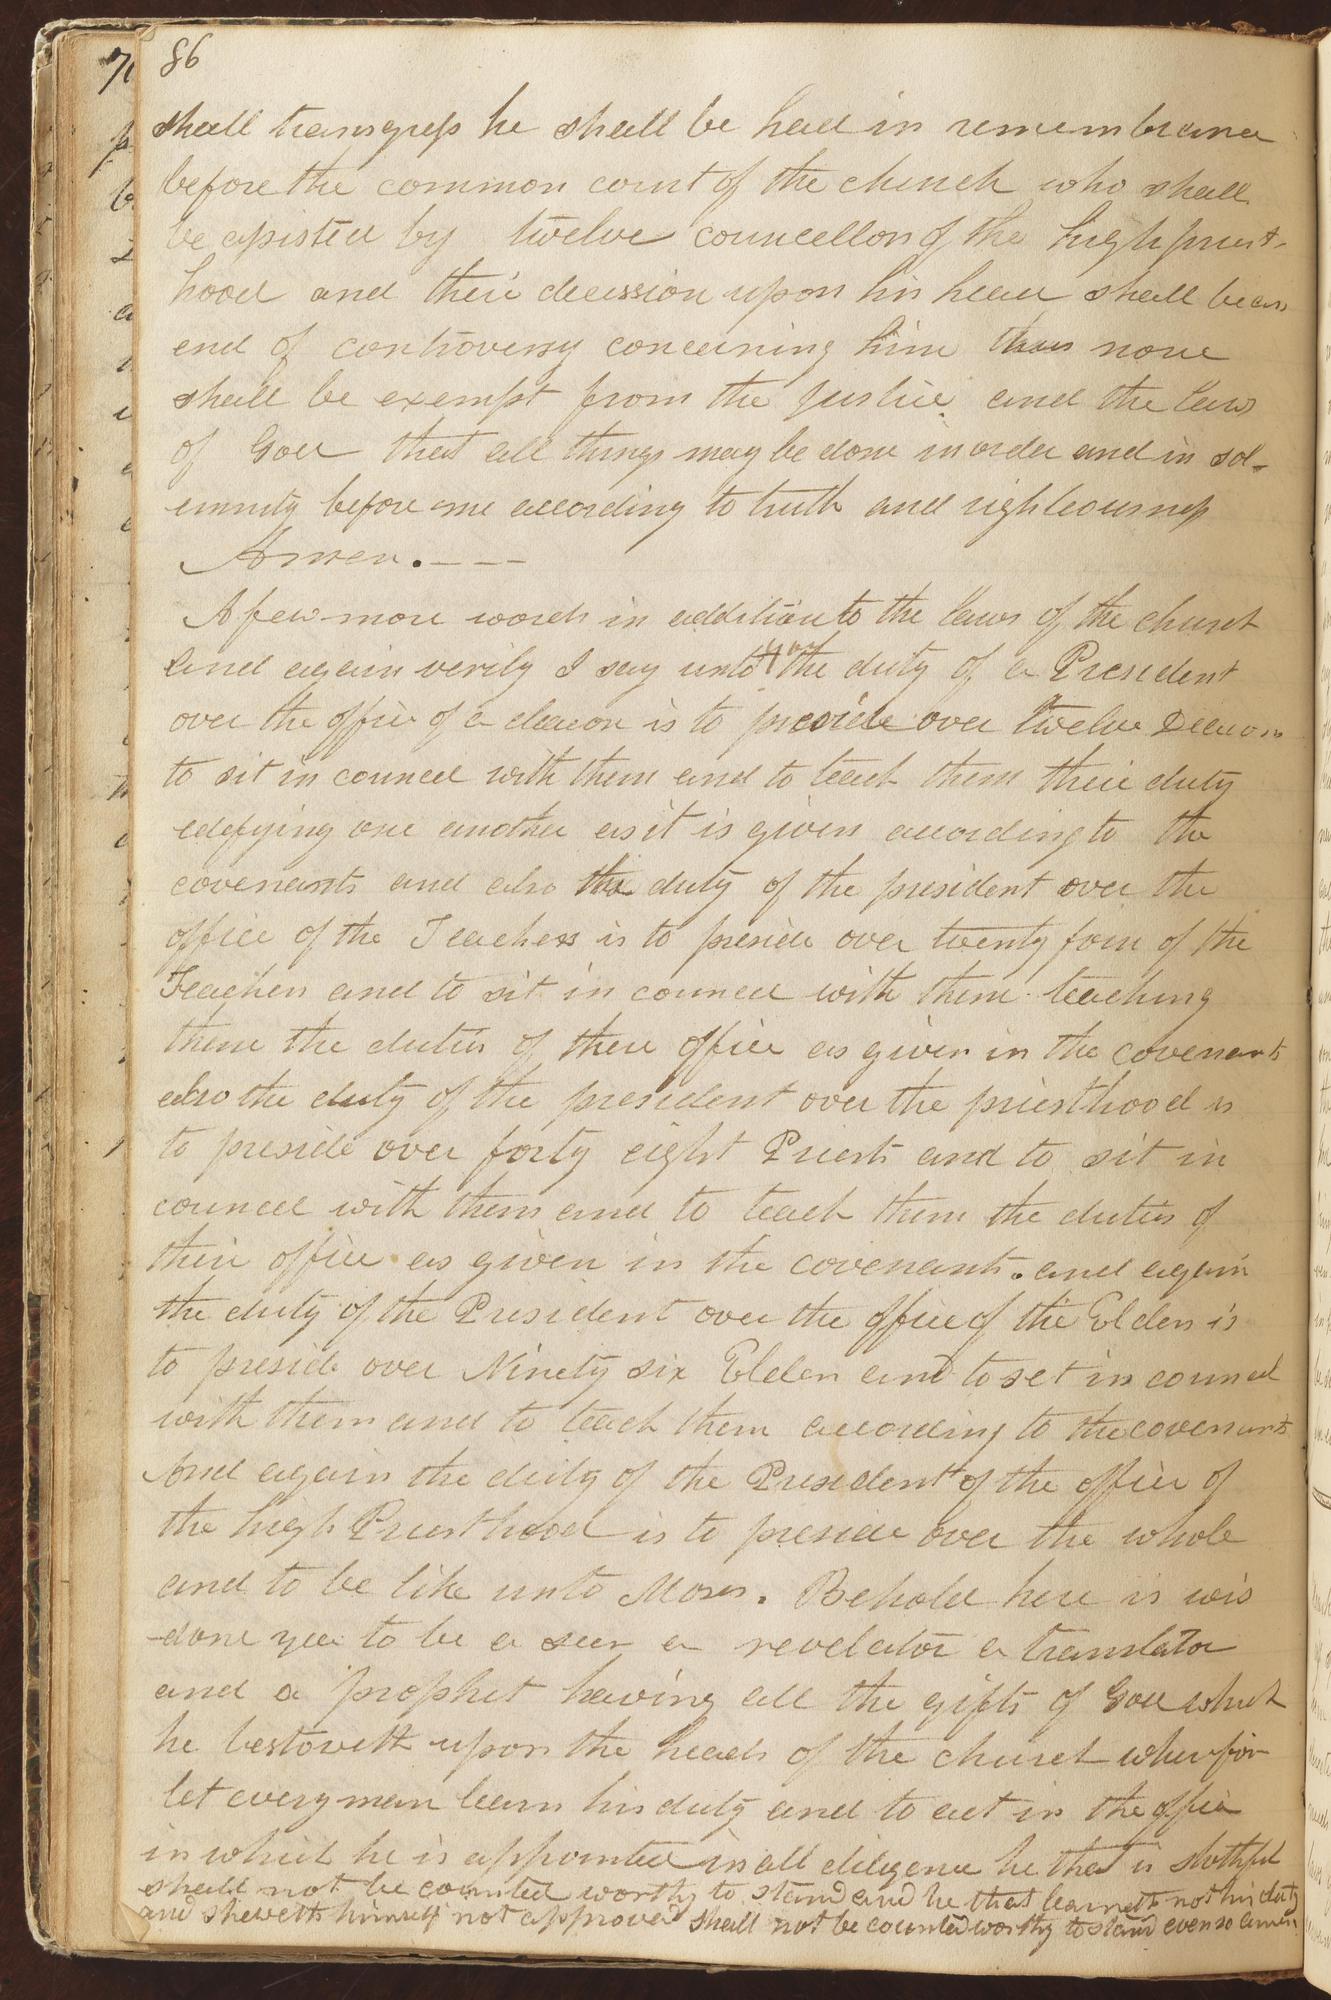 86
shall transgress he shall be had in remembrance
before the common court of the church who shall
be assisted by twelve councellors of the high priest-
hood and their decission upon his head shall be an
end of controversy concerning him thus none
shall be exempt from the justice and the laws
of God that all things may be done in order and in sol-
emnity before me according to truth and righteousness
Amen. - - -
A few more words in addition to the laws of the church
And again verily I say unto you the duty of a President
over the office of a deacon is to preside over twelve Deacons
to sit in council with them and to teach them their duty
edefying one another as it is given according to the
covenants and also the duty of the president over the
office of the Teachers is to preside over twenty four of the
Teachers and to sit in council with them teaching
them the duties of there office as given in the covenants
also the duty of the president over the priesthood is
to preside over forty eight Priests and to sit in
council with them and to teach them the duties of
their office as given in the covenants. and again
the duty of the President over the office of the Elders is
to preside over Ninety six Elders and to set in council
with them and to teach them according to the covenants
And again the duty of the President of the office of
the high Priesthood is to preside over the whole
and to be like unto Moses. Behold here is wis
-dom yea to be a seer a revelator a translator
and a prophet having all the gifts of God which
he bestoweth upon the heads of the church wherefore
let every man learn his duty and to act in the office
in which he is appointed in all diligence he that is slothful
shall not be counted worthy to stand and he that learneth not his duty
and sheweth himself not approved shall not be counted worthy to stand even so amen